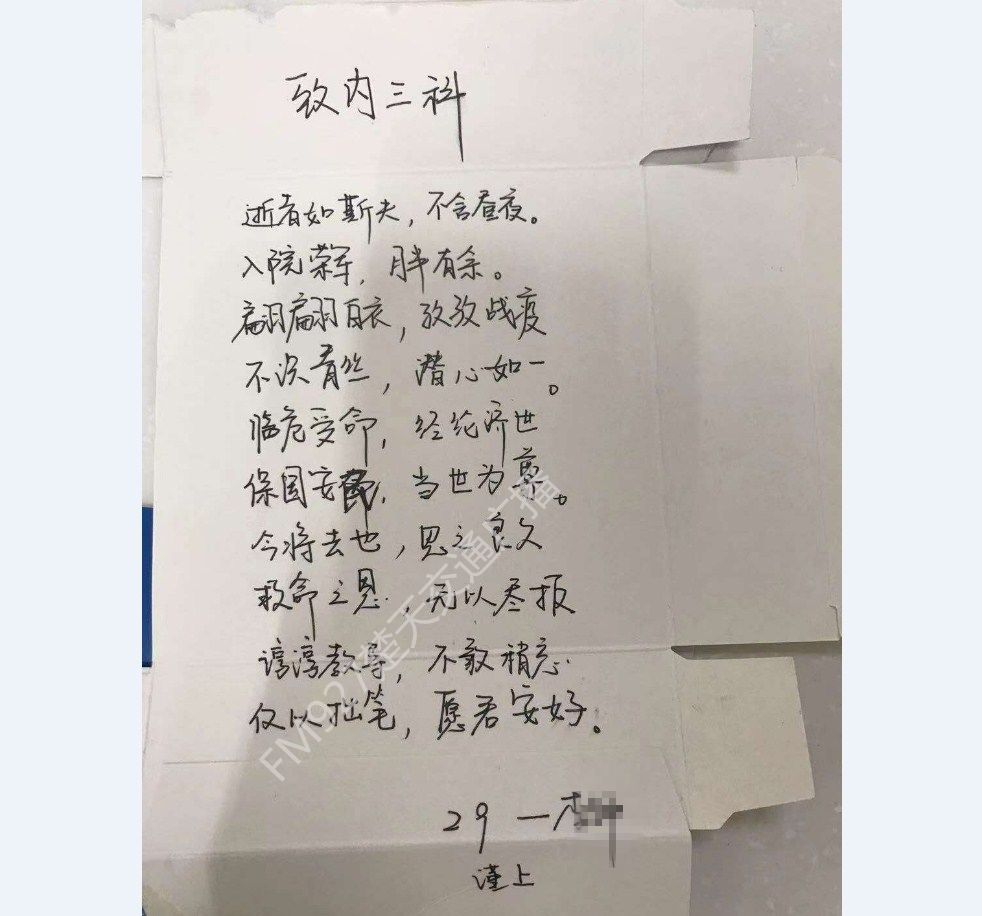 致内三科
逝者如斯夫,不舍昼夜。
入院荣军,胖有余。
翩翩白衣,孜孜战疫
不误青丝,潜心如一。
临危受命,经纶济世
保国安民,当世为慕。
今将去也,思之良久
救命之恩,无以尽报
谆谆教导,不敢稍忘.
仅以拙笔,愿君安好。
29 一李
谨上
FM927楚天交通广播